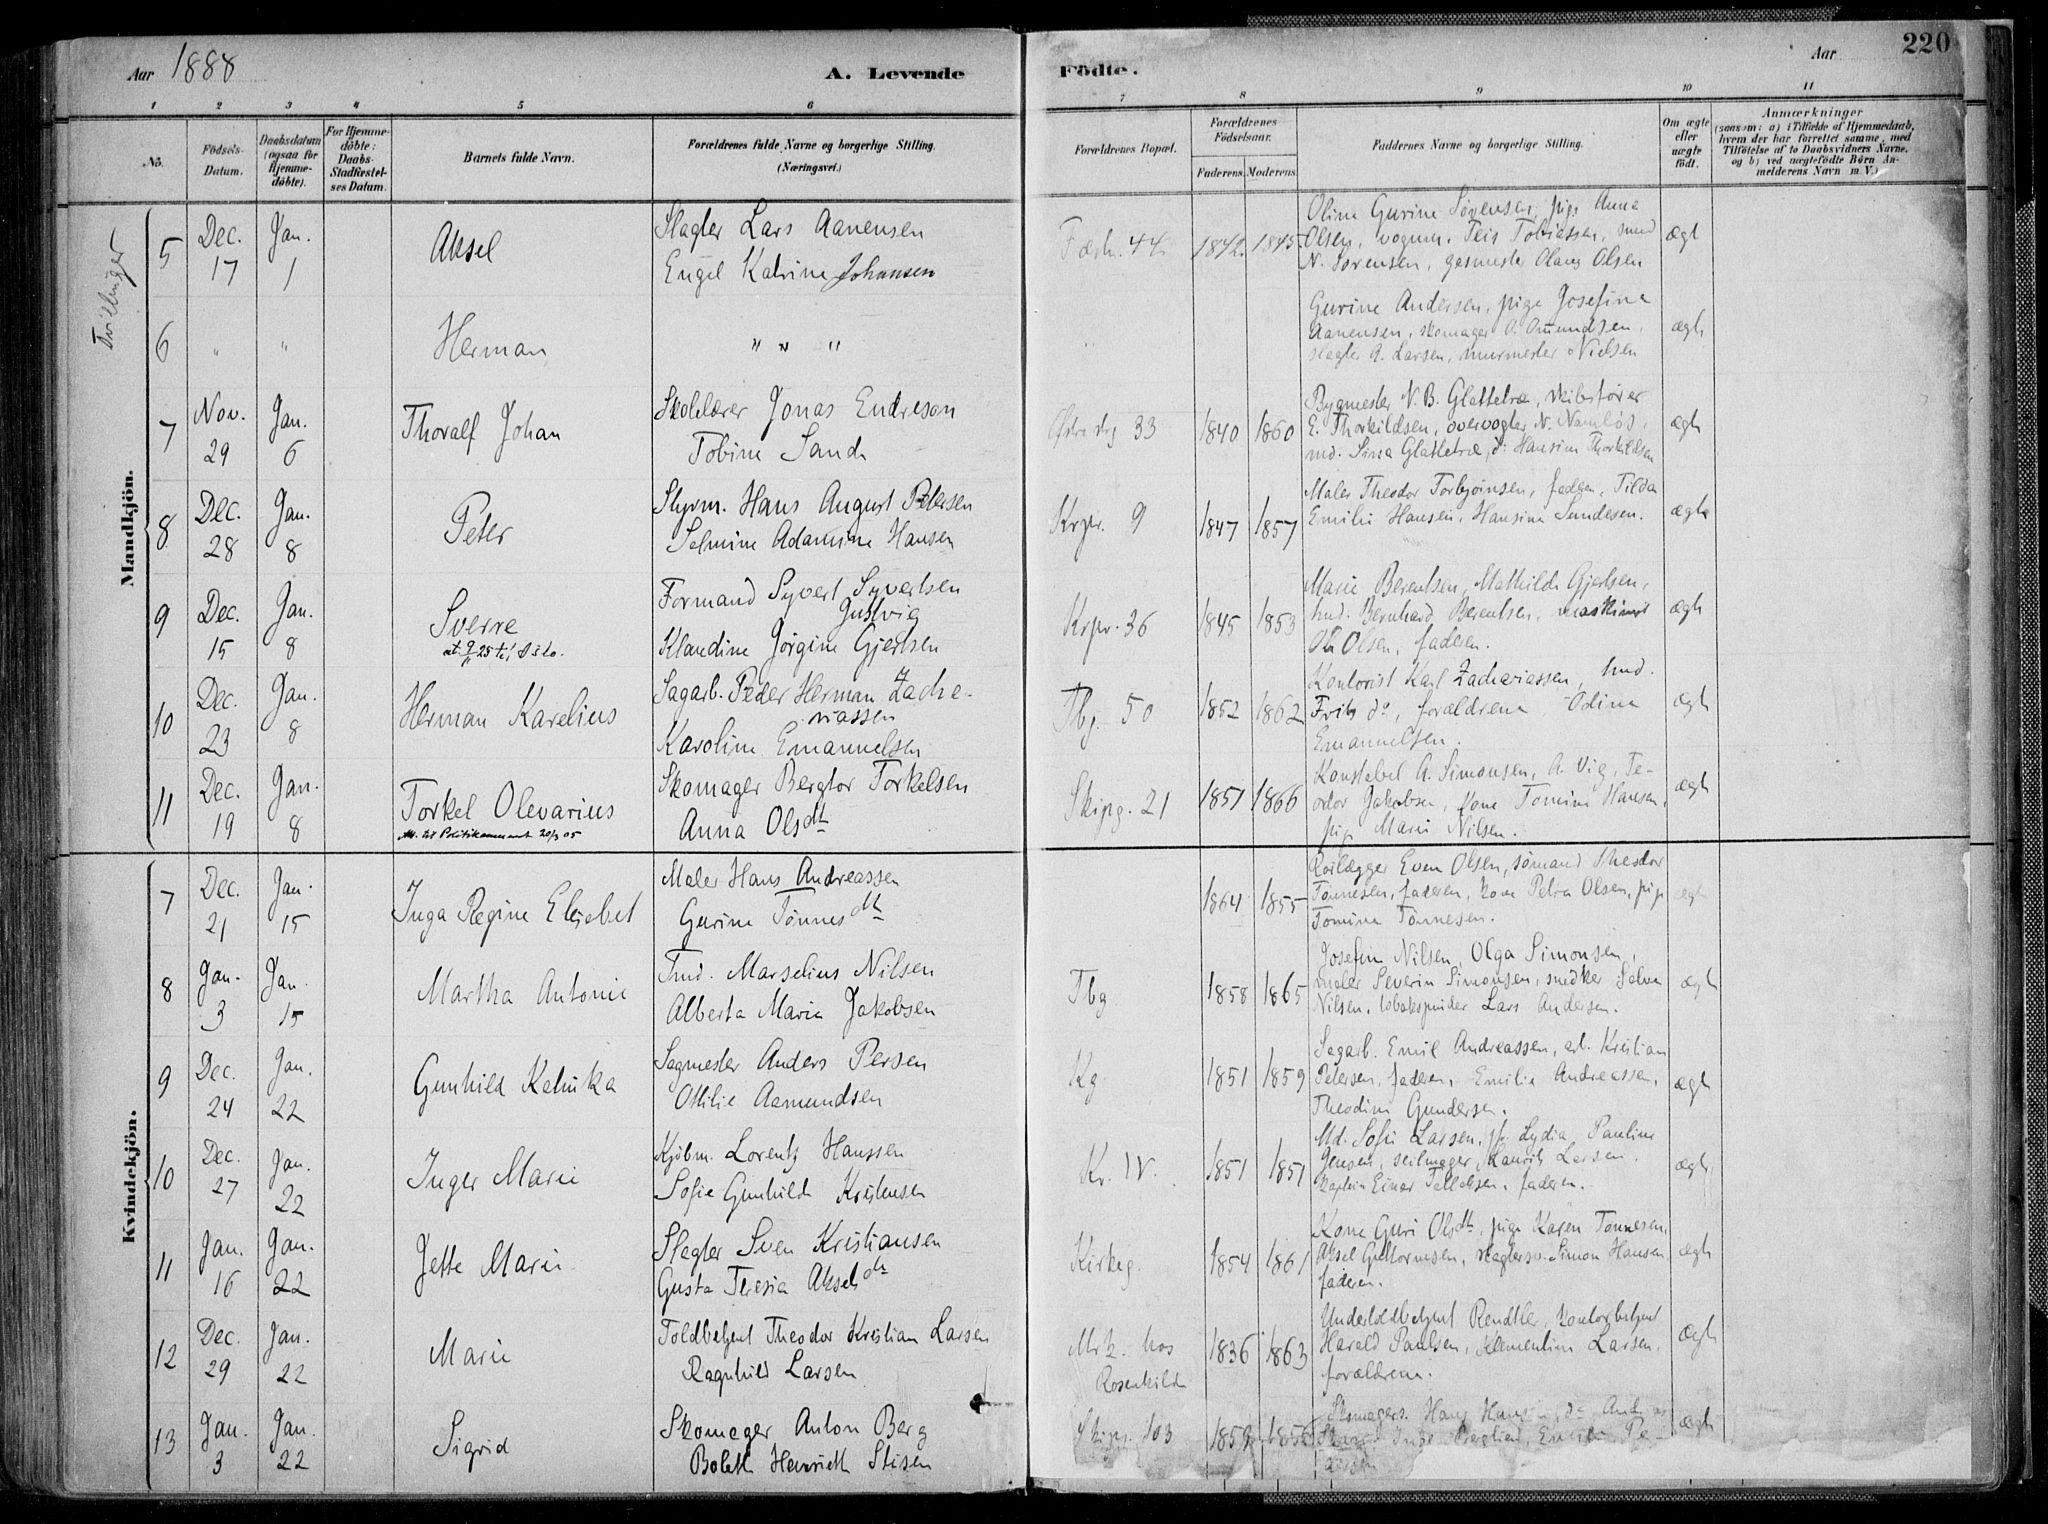 Aar 1888
A. Levende Födte.
Aar
220
1 2 3 4 5 6 7 8 9 10 11
No.
Födsels-Datum.
Daabsdatum (ogsaa for Hjemme-döbte).
For Hjemme-döbte: Daabs-Stadfæstelses Datum.
Barnets fulde Navn.
Forældrenes fulde Navne og borgerlige Stilling.
(Næringsvei.)
Forældrenes Bopæl.
Forældrenes Födselsaar.
Faderens. Moderens.
Faddernes Navne og borgerlige Stilling.
Om ægte eller uægte födt.
Anmærkninger
(saasom: a) i Tilfælde af Hjemmedaab,
hvem der har forrettet samme, med
Tilföielse af to Daabsvidners Navne,
og b) ved uægtefödte Börn An-
melderens Navn m. V.)
Mandkjön.
Tvillinger
5 Dec. 17 Jan. 1 Aksel
Slagter Lars Aanensen
Engel Katrine Johansen
44 1842. 1845.
Oline Gurine Sørensen, pige Anna
Olsen, vognm. Teis Tobiassen, smed
N. Sørensen, gasmester Olaus Olsen
ægt
6 " " Herman
" " "
Gurine Andersen, pige Josefine
Aanensen, skomager O. Omundsen,
slagter A. Larsen, murmester Nielsen
ægt
7 Nov. 29 Jan. 6 Thoralf Johan
Skolelærer Jonas Endreson
Tobine Sand
33 1840 1860
Bygmester N. B. Glattetræ, skibsfører
E. Thorkildsen, overvogter N. Namløs,
md. Sina Glattetræ, do Hansine Thorkildsen
ægt
8 Dec. 28 Jan. 8 Peter
Styrm. Hans August Petersen
Selmine Adamine Hansen
Krpr. 9 1847 1857
Maler Theodor Torbjørnsen, faderen, Tilda
Emilie Hansen, Hansine Sundesen.
ægte
9 Dec. 15 Jan. 8 Sverre
at. 9/11 25 til Oslo.
Formand Syvert Syvertsen
Gustvig
Klaudine Jørgine Gjertsen
Krpr. 36 1845 1853
Marie Berentsen, Mathilde Gjertsen,
tmd. Bernhard Berentsen, maskinist
Olsen, faderen.
ægt
10 Dec. 23 Jan. 8 Herman Karelius
Sagarb. Peder Herman Zacha-
riassen
Karoline Emanuelsen
Tbg. 50 1852 1862
Kontorist Karl Zachariassen, tmd.
Frits do, forældrene Odina
Emanuelsen.
ægt
11 Dec. 19 Jan. 8 Torkel Olevarius
At. til Politikammeret 20/3 05
Skomager Bergtor Torkelsen
Anna Olsdt
Skipg. 21 1851 1866
Konstabel A. Simonsen, A. Vig, Te-
odor Jakobsen, kone Tomine Hansen,
pig. Marie Nilsen.
ægt
Kvindekjön.
7 Dec. 21 Jan. 15 Inga Regine Elisabet
Maler Hans Andreassen
Gurine Tønnesdt
1864 1855
Rørlægger Even Olsen, sømand Theodor
Tønnesen, faderen, kone Petra Olsen, pip
Tomine Tønnesen.
ægt
8 Jan. 3 Jan. 15 Martha Antonie
Tmd. Marselius Nilsen
Alberta Marie Jakobsen
Tbg 1858 1865
Josefine Nilsen, Olga Simonsen,
maler Severin Simonsen, snedker Salve
Nilsen, tobakspinder Lars Andersen.
ægt
9 Dec. 24 Jan. 22 Gunhild Kalinka
Sagmester Anders Persen
Ottilie Aamundsen
Kg 1851 1859
Sagarb. Emil Andreassen, arb. Kristian
Petersen, faderen, Emilie Andreassen,
Theodine Gundersen.
ægt
10 Dec. 27 Jan. 22 Inger Marie
Kjøbm. Lorentz Hanssen
Sofie Gunhilde Kristensen
Kr. IV. 1851 1851
Md. Sofie Larsen, fr. Lydia Pauline
Jensen, seilmager Larsen.
kaptein Einar Tellefsen, faderen.
ægt.
11 Jan. 16 Jan. 22 Jette Marie
Slagter Sven Kristiansen
Gusta Teresia Akselsdt
Kirkeg. 1854 1861
Kone Guri Olsdt, pige Karen Tønnesen,
Aksel Guttormsen, slagtersv. Simon Hansen,
faderen.
ægt
12 Dec. 29 Jan. 22 Marie
Toldbetjent Theodor Kristian Larsen
Ragnhild Larsen
Mrk. hos Rosenkilde 1836 1863
Undertoldbetjent Rendtler, kontorbetjent
Harald Paulsen, Klementine Larsen,
forældrene.
ægt
13 Jan. 3 Jan. 22 Sigrid
Skomager Anton Berg
Bolette Henriette Stisen
Skipg. 103 1859 1856
Skomagers. Hans
ægt